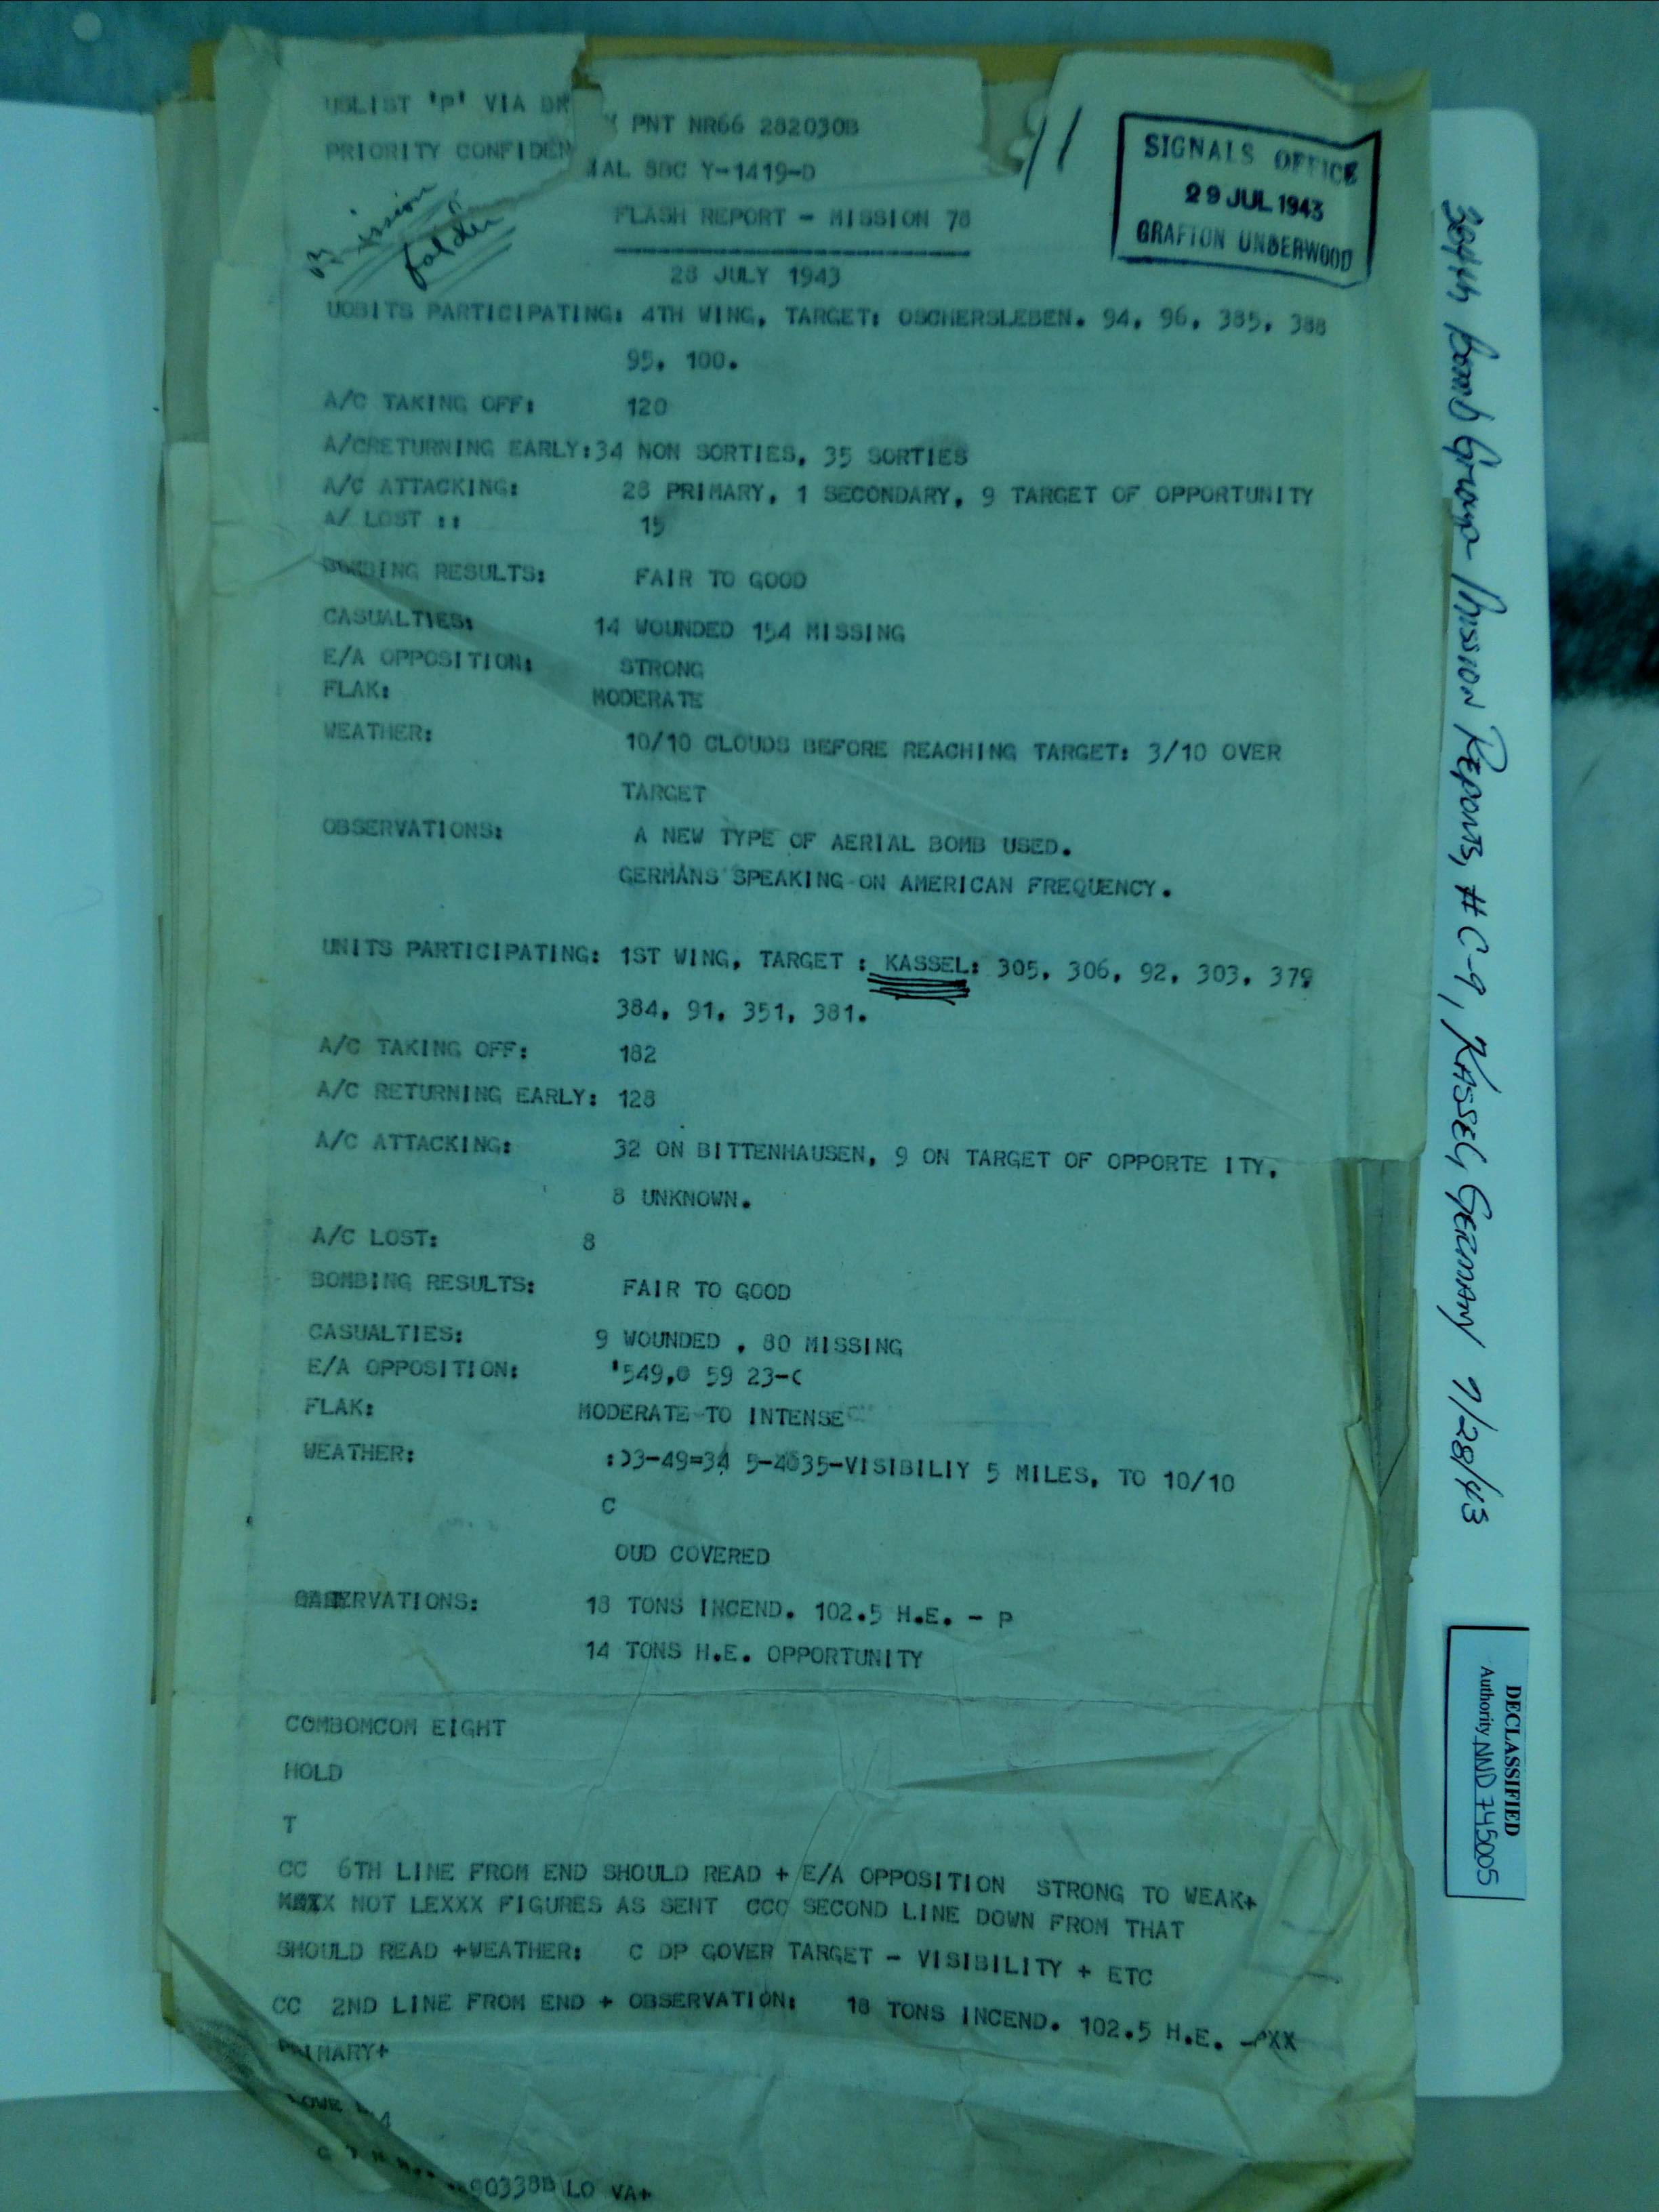 USLIST 'P' VIA BM
Y PNT NR66 282030B
PRIORITY CONFIDEN
IAL SBC Y-1419-D
11
SIGNALS OFFICE
29 JUL 1943
GRAFTON UNDERWOOD
Mission
folder
FLASH REPORT - MISSION 78
28 JULY 1943
UOSITS PARTICIPATING: 4TH WING, TARGET: OSCHERSLEBEN. 94, 96, 385, 388
95, 100.
A/C TAKING OFF: 120
A/CRETURNING EARLY:34 NON SORTIES, 35 SORTIES
A/C ATTACKING: 28 PRIMARY, 1 SECONDARY, 9 TARGET OF OPPORTUNITY
A/ LOST :: 15
BOMBING RESULTS: FAIR TO GOOD
CASUALTIES: 14 WOUNDED 154 MISSING
E/A OPPOSITION: STRONG
FLAK: MODERATE
WEATHER: 10/10 CLOUDS BEFORE REACHING TARGET: 3/10 OVER
TARGET
OBSERVATIONS: A NEW TYPE OF AERIAL BOMB USED.
GERMANS SPEAKING ON AMERICAN FREQUENCY.
UNITS PARTICIPATING: 1ST WING, TARGET : KASSEL: 305, 306, 92, 303, 379,
384, 91, 351, 381.
A/C TAKING OFF: 182
A/C RETURNING EARLY: 128
A/C ATTACKING: 32 ON BITTENHAUSEN, 9 ON TARGET OF OPPORTE ITY,
8 UNKNOWN.
A/C LOST: 8
BOMBING RESULTS: FAIR TO GOOD
CASUALTIES: 9 WOUNDED , 80 MISSING
E/A OPPOSITION: '549,0 59 23-C
FLAK: MODERATE TO INTENSE
WEATHER: :)3-49=34 5-4035-VISIBILIY 5 MILES, TO 10/10
C
OUD COVERED
ERVATIONS: 18 TONS INCEND. 102.5 H.E. - P
14 TONS H.E. OPPORTUNITY
COMBOMCOM EIGHT
HOLD
T
CC 6TH LINE FROM END SHOULD READ + E/A OPPOSITION STRONG TO WEAK+
NOT LEXXX FIGURES AS SENT CCC SECOND LINE DOWN FROM THAT
SHOULD READ +WEATHER: C DP GOVER TARGET - VISIBILITY + ETC
CC 2ND LINE FROM END + OBSERVATION: 18 TONS INCEND. 102.5 H.E. -PXX
PRIMARY+
00338B LO VA+
384th Bomb Group Mission Reports, # C-9, KASSEL, GERMANY 7/28/43
DECLASSIFIED
Authority NND 745005